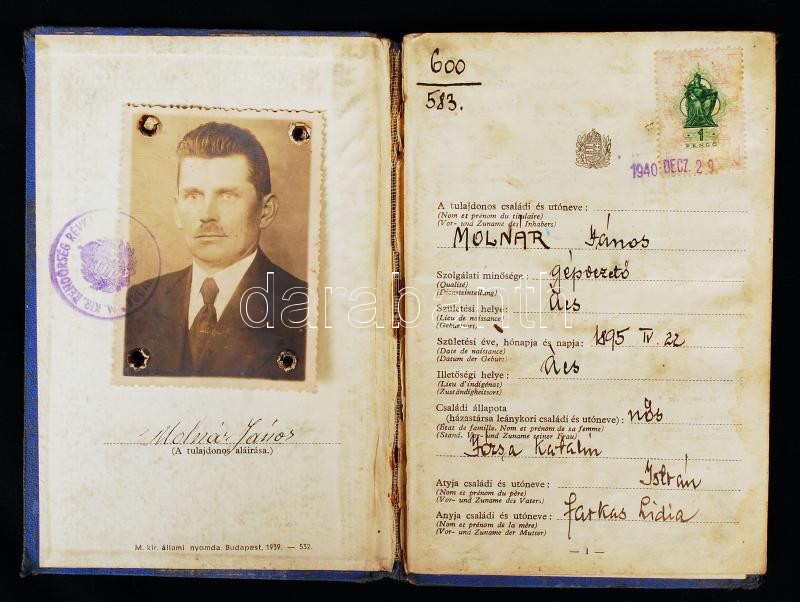 M. KIR. RENDŐRSÉG RÉVK
Molnár János
(A tulajdonos aláírása.)
M. kir. állami nyomda. Budapest, 1939. — 532.
600
583.
1
PENGŐ
1940 DECZ. 29.
A tulajdonos családi és utóneve:
(Nom et prénom du titulaire)
(Vor- und Zuname des Inhabers)
MOLNÁR János
Szolgálati minősége: gépvezető
(Qualité)
(Diensteinteilung)
Születési helye: Ács
(Lieu de naissance)
(Geburtsort)
Születési éve, hónapja és napja: 1895 IV. 22
(Date de naissance)
(Datum der Geburt)
Ács
Illetőségi helye:
(Lieu d'indigénat)
(Zuständigkeitsort)
Családi állapota
(házastársa leánykori családi és utóneve): nős
(État de famille. Nom et prénom de sa femme)
(Stand. Vor- und Zuname seiner Frau)
Józsa Katalin
István
Atyja családi és utóneve:
(Nom et prénom du père)
(Vor- und Zuname des Vaters)
Anyja családi és utóneve: Farkas Lidia
(Nom et prénom de la mère)
(Vor- und Zuname der Mutter)
— 1 —
darabanth